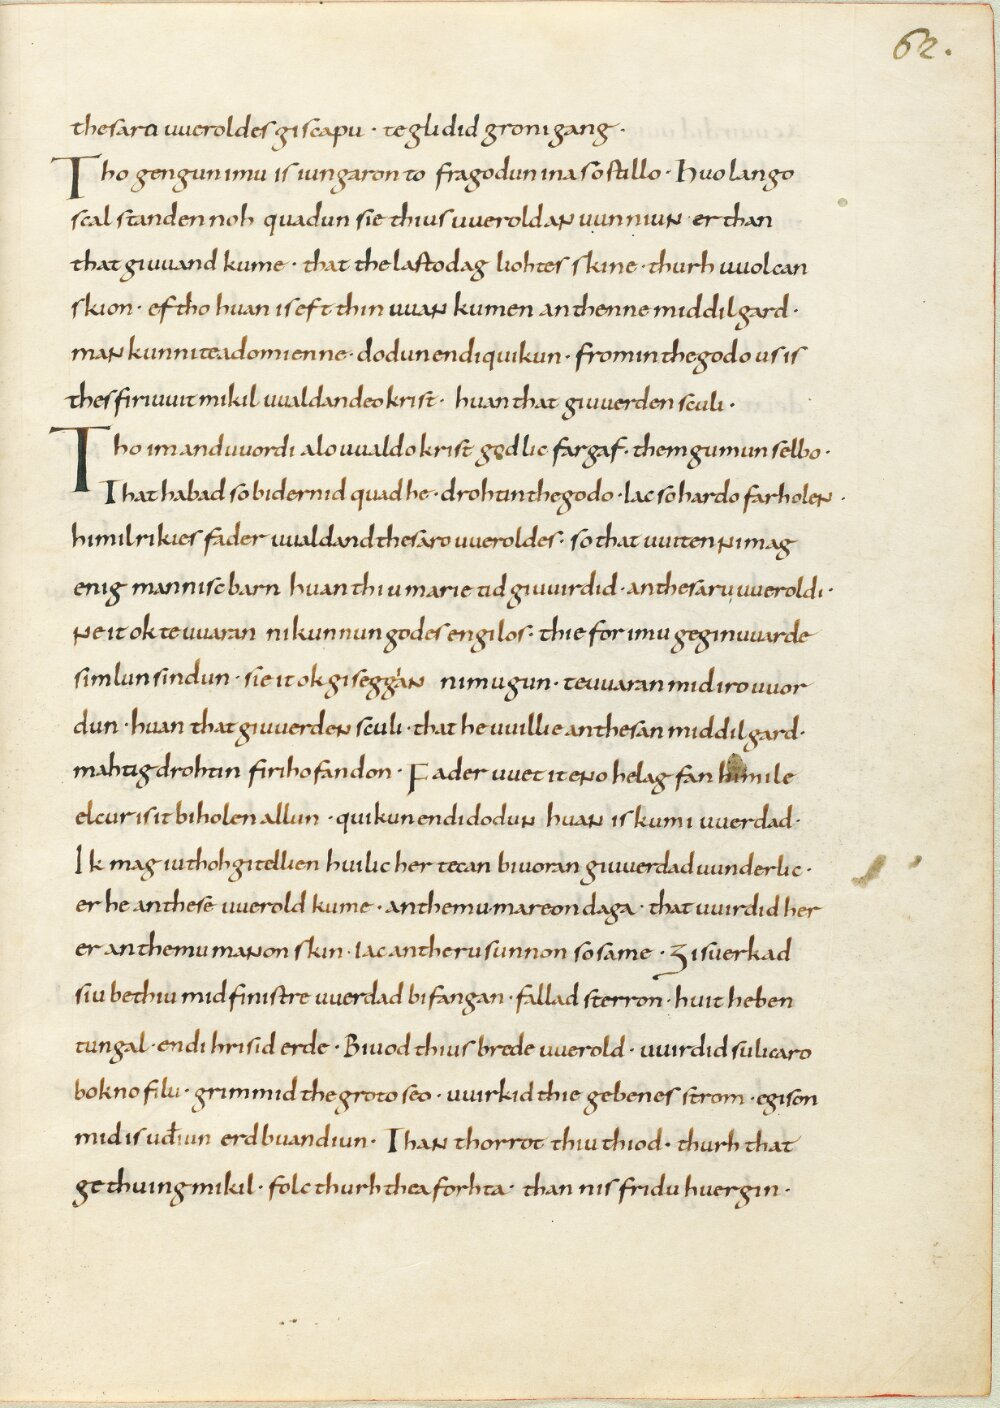 62.
thesara uueroldes giscapu · te glidid groni gang ·
Tho gengun imu is iungaron to fragodun ina so stillo · Huo lango
scal standen noh quadun sie thius uuerold an uunniun er than
that giuuand kume · that the lasto dag liohtes skine · thurh uuolcan
skion · eftho huan is eft thin uuan kumen an thenne middilgard ·
mankunnite adomienne · dodun endi quikun · fro min the godo us is
thes firiuuit mikil uualdandeo krist · huan that giuuerden sculi ·
Tho im anduuordi alouualdo krist godlic fargaf · them gumun selbo ·
That habad so bidernid quad he · drohtin the godo · Iac so hardo farholen ·
himilrikies fader uualdand thesaro uueroldes · so that uuiten ni mag
enig mannisc barn huan thiu marie tid giuuirdid · an thesaru uueroldi ·
ne it ok te uuaran ni kunnun godes engilos · thie for imu geginuuarde
simlun sindun · sie it ok giseggan ni mugun · te uuaran mid iro uuor
dun · huan that giuuerden sculi · that he uuillie an thesan middilgard ·
mahtig drohtin firiho fandon · Fader uuet it eno helag fan himile
elcur is it biholen allun · quikun endi dodun huan is kumi uuerdad ·
Ik mag iu thoh gitellien huilic her tecan biuoran giuuerdad uunderlic ·
er he an these uuerold kume · an themu mareon daga · that uuirdid her
er an themu manon skin · Iac an theru sunnon so same · Gisuerkad
siu bethiu mid finistre uuerdad bifangan · fallad sterron · huit heben
tungal · endi hrisid erde · Biuod thius brede uuerold · uuirdid sulicaro
bokno filu · grimmid the groto seo · uuirkid thie gebenes strom · egison
mid is uđiun erdbuandiun · Than thorrot thiu thiod · thurh that
gethuing mikil · folc thurh thea forhta · than nis fridu huergin ·